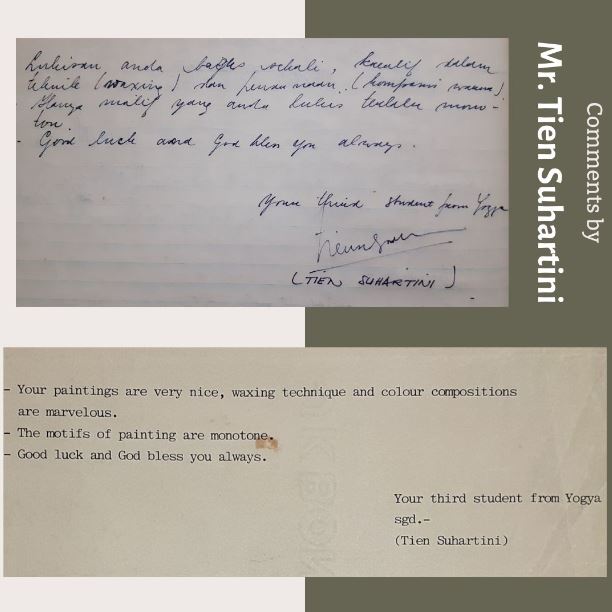 Comments by
Mr. Tien Suhartini
Lukisan anda bagus sekali, kreatif dalam
tehnik (waxing) dan pewarnaan (komposisi warna).
Hanya motif yang anda lukis terlalu mono-
ton.
- Good luck and God bless you always.
Your third student from Yogya
(TIEN SUHARTINI)
- Your paintings are very nice, waxing technique and colour compositions
are marvelous.
- The motifs of painting are monotone.
- Good luck and God bless you always.
Your third student from Yogya
sgd.-
(Tien Suhartini)